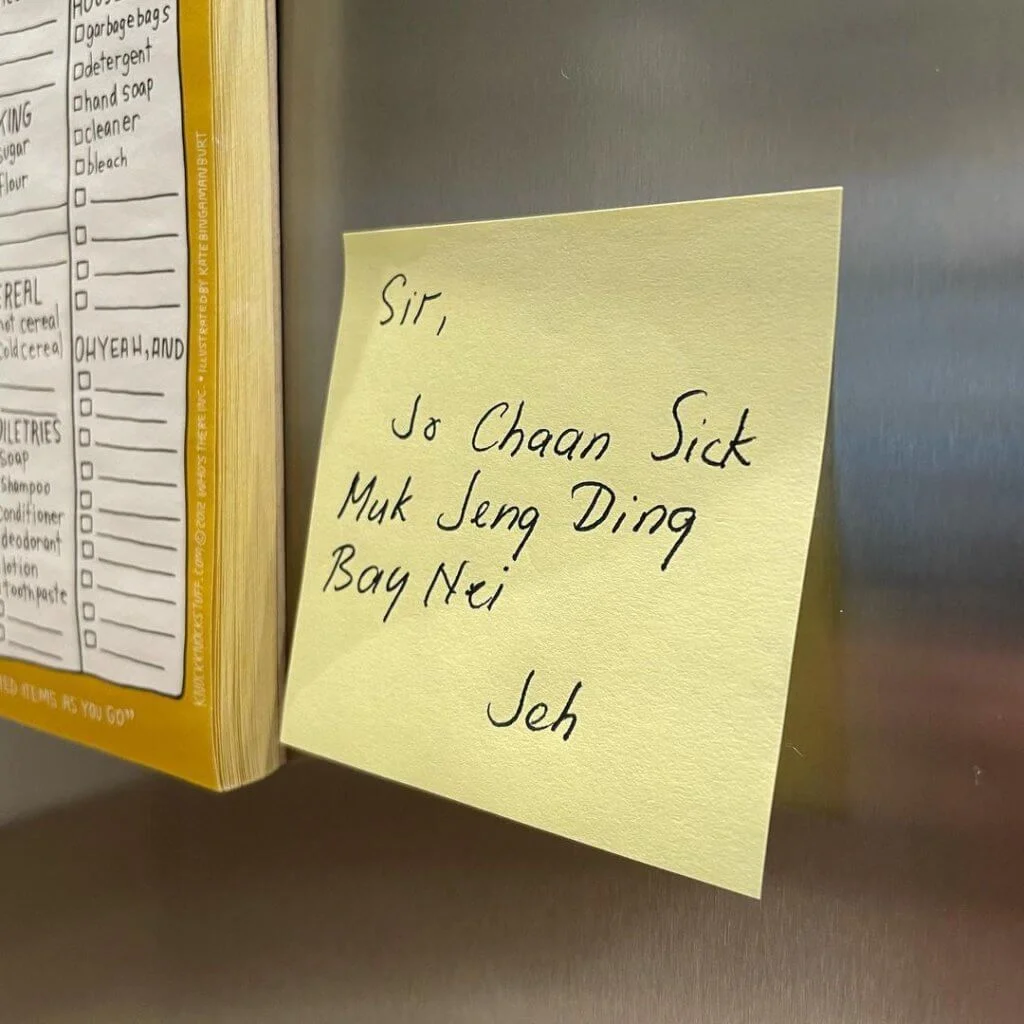 HOUS
garbage bags
detergent
hand soap
cleaner
bleach
KING
sugar
flour
EREAL
hot cereal
cold cereal
OH YEAH, AND
OILETRIES
soap
shampoo
conditioner
deodorant
lotion
toothpaste
ED ITEMS AS YOU GO"
KNOCKKNOCKSTUFF.COM © 2012 WHO'S THERE INC. • ILLUSTRATED BY KATE BINGAMAN BURT
Sir,
Jo Chaan Sick
Muk Jeng Ding
Bay Nei
Jeh